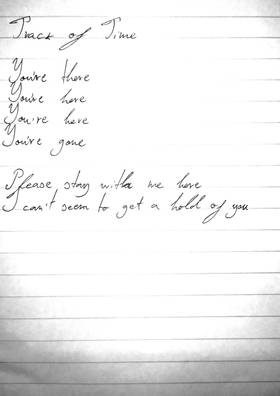 Track of Time
You're there
You're here
You're here
You're gone
Please stay with me here
I can't seem to get a hold of you